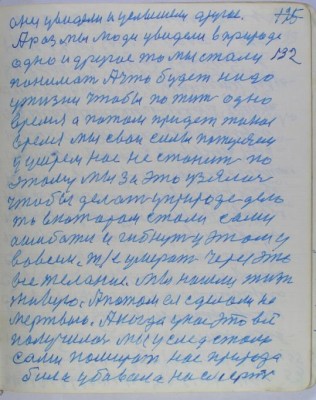 они увидели и услышали другое. 175
А раз мы люди увидели в природе
одно и другое то мы стали 132
понимать А что будет надо
у жизни чтобы пожить одно
время а потом придет такое
время мы свои силы потеряем
и умрем нас не станет по
этому мы за это взялись
чтобы делать у природе дело
то в котором стали сами
ошибатся и гибнуть у этом
вовсем. т/е умерать через это
все желание. Мы нашли
живую. А потом ея сделали на
мертвою. А когда у нас это всё
получилось мы у след стали
сами помирать нас природа
била убивала на смерть